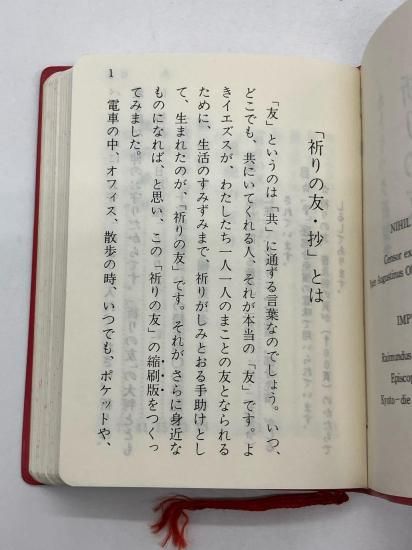 「祈りの友・抄」とは
「友」というのは「共」に通ずる言葉なのでしょう。いつ、
どこでも、共にいてくれる人、それが本当の「友」です。よ
きイエズスが、わたしたち一人一人のまことの友となられる
ために、生活のすみずみまで、祈りがしみとおる手助けとし
て、生まれたのが、「祈りの友」です。それが さらに身近な
ものになれば、と思い、この「祈りの友」の縮刷版をつくっ
てみました。
電車の中、オフィス、散歩の時、いつでも、ポケットや、
1
NIHIL
Censor ex
Augustinus
IMP
Raimundus
Episcop
Kyoto-die